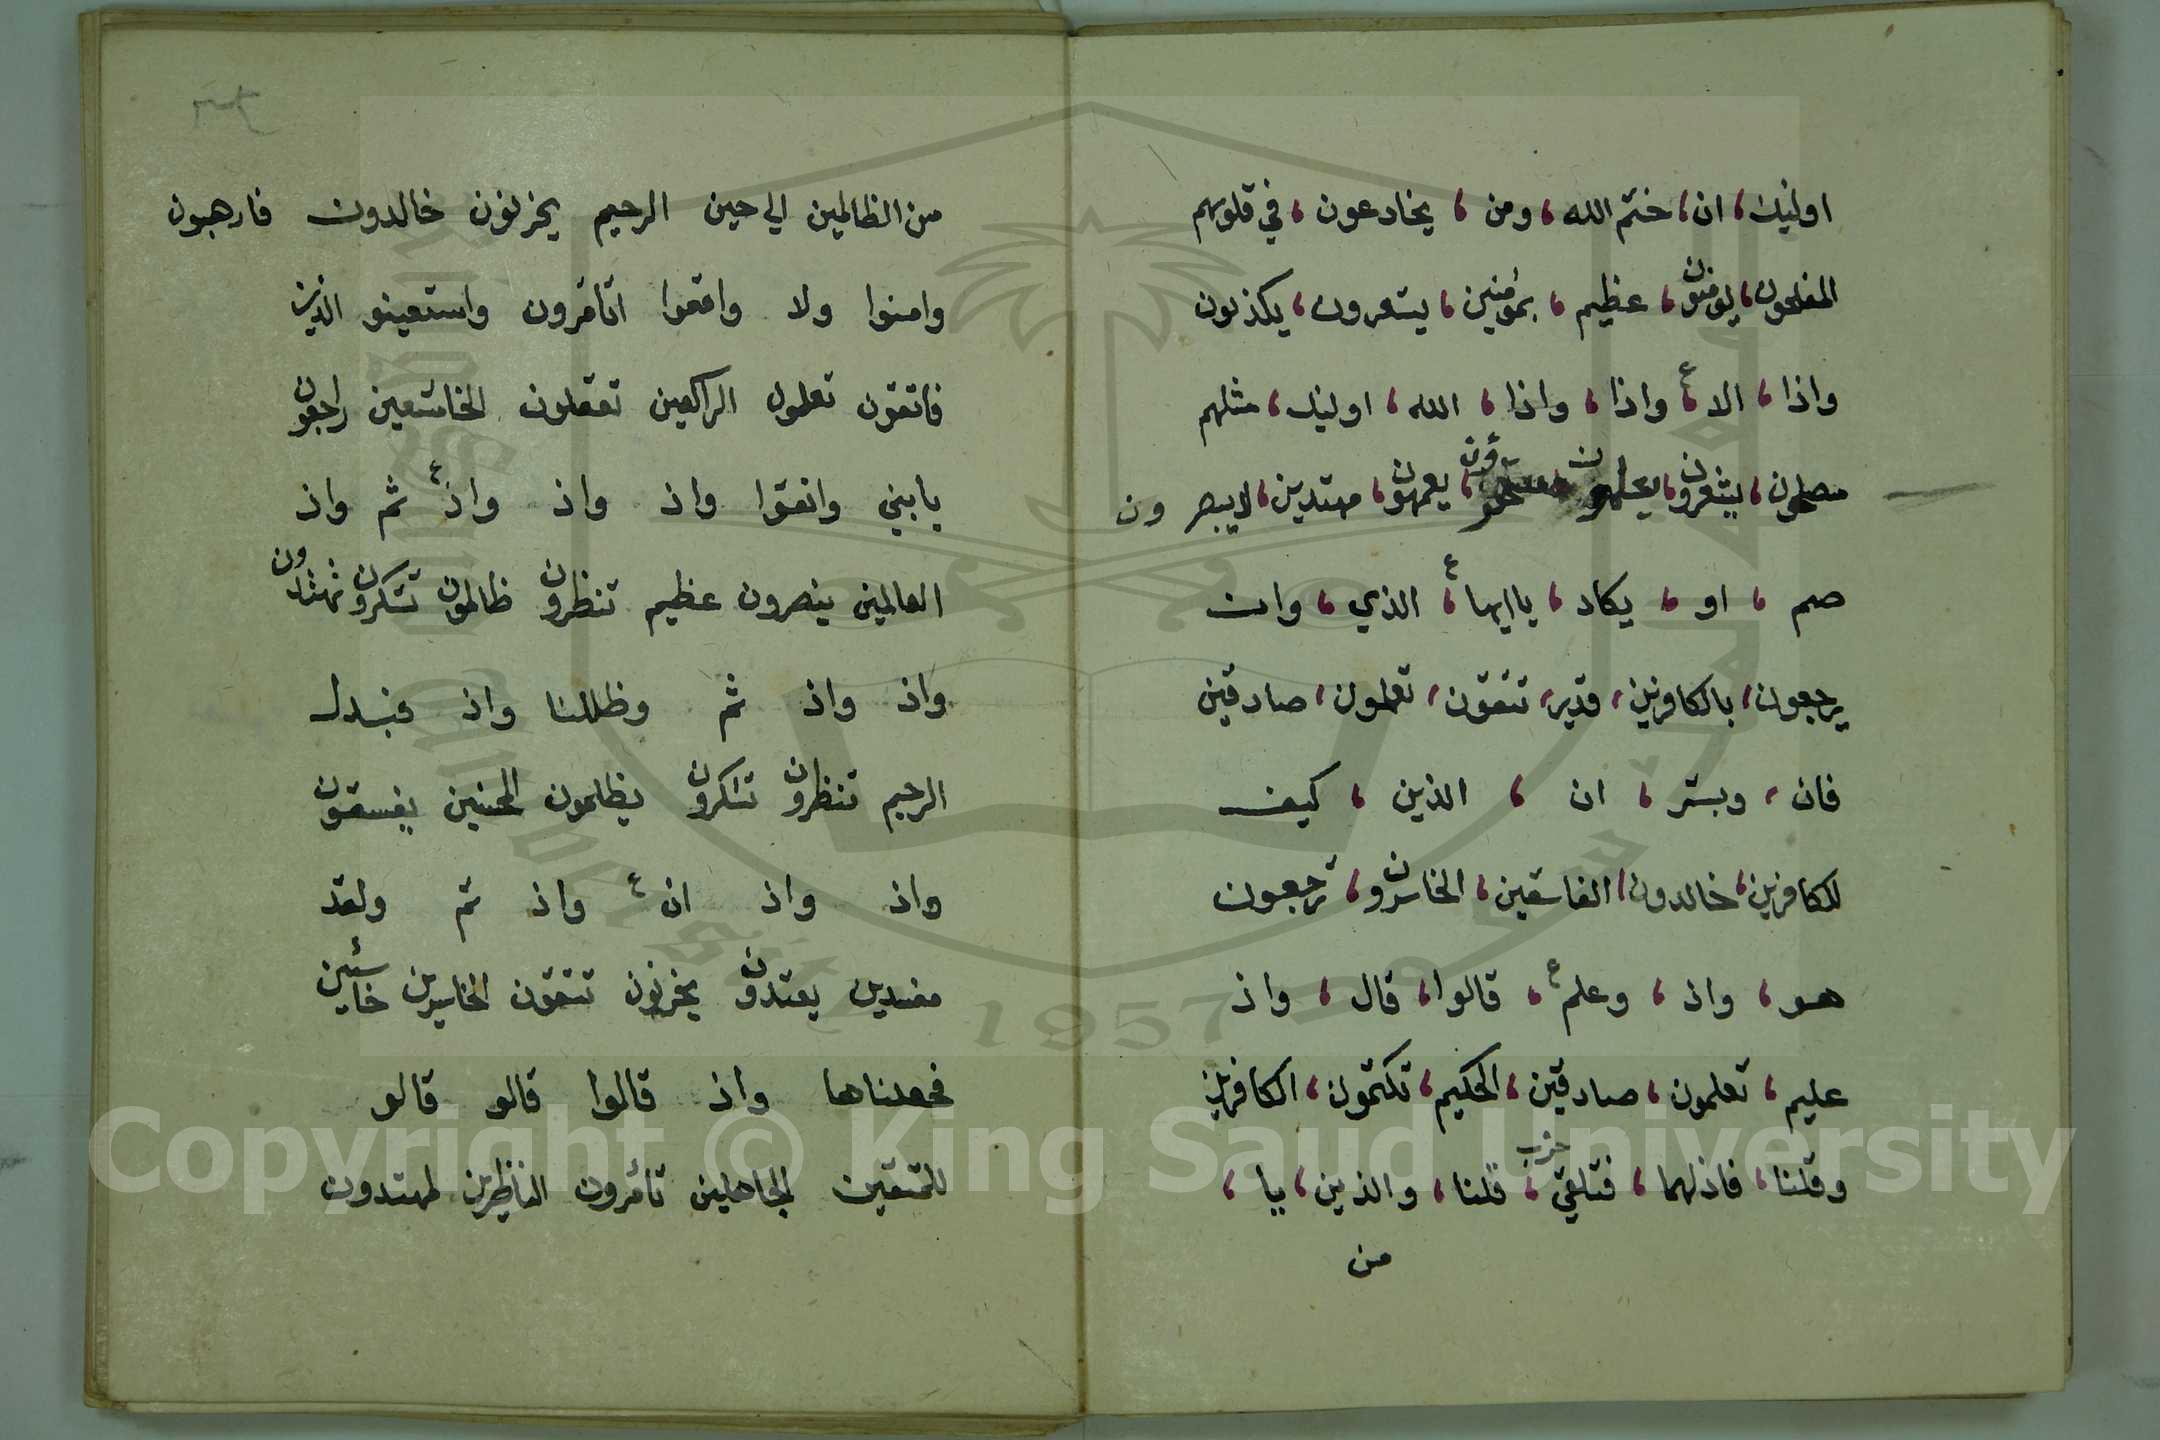 اوليك، ان، ختم الله، ومن، يخادعون، في قلوبهم
المفلحون، يومنون، عظيم، بمؤمنين، يشعرون، يكذبون
واذا، الاء، واذا، واذا، الله، اوليك، مثلهم
مصلحون، يشعرون، يعلمون، يعمهون، مهتدين، لايبصرون
صم، او، يكاد، ياايها ء، الذي، وان
يرجعون، بالكافرين، قدير، تتقون، تعلمون، صادقين
فان، وبشر، ان، الذين، كيف
للكافرين، خالدون، الفاسقين، الخاسرون، ترجعون
هو، واذ، وعلم ء، قالوا، قال، واذ
عليم، تعلمون، صادقين، الحكيم، تكتمون، الكافرين
حزب
وقلنا، فازلهما، فتلقي، قلنا، والذين، يا،
من
من الظالمين الي حين الرحيم يحزنون خالدون فارهبون
وامنوا ولا واقيموا اتامرون واستعينو الذين
فاتقون تعلمون الراكعين تعقلون الخاشعين راجعون
يابني واتقوا واذ واذ واذ ء ثم واذ
العالمين ينصرون عظيم تنظرون ظالمون تشكرون تهتدون
واذ واذ ثم وظللنا واذ فبدل
الرحيم تنظرون تشكرون يظلمون المحسنين يفسقون
واذ واذ ان ء واذ ثم ولقد
مفسدين يعتدون يحزنون تتقون الخاسرين خاسئين
فجعلناها واذ قالوا قالو قالو
للمتقين الجاهلين تأمرون الناظرين لمهتدون
Copyright © King Saud University
1957